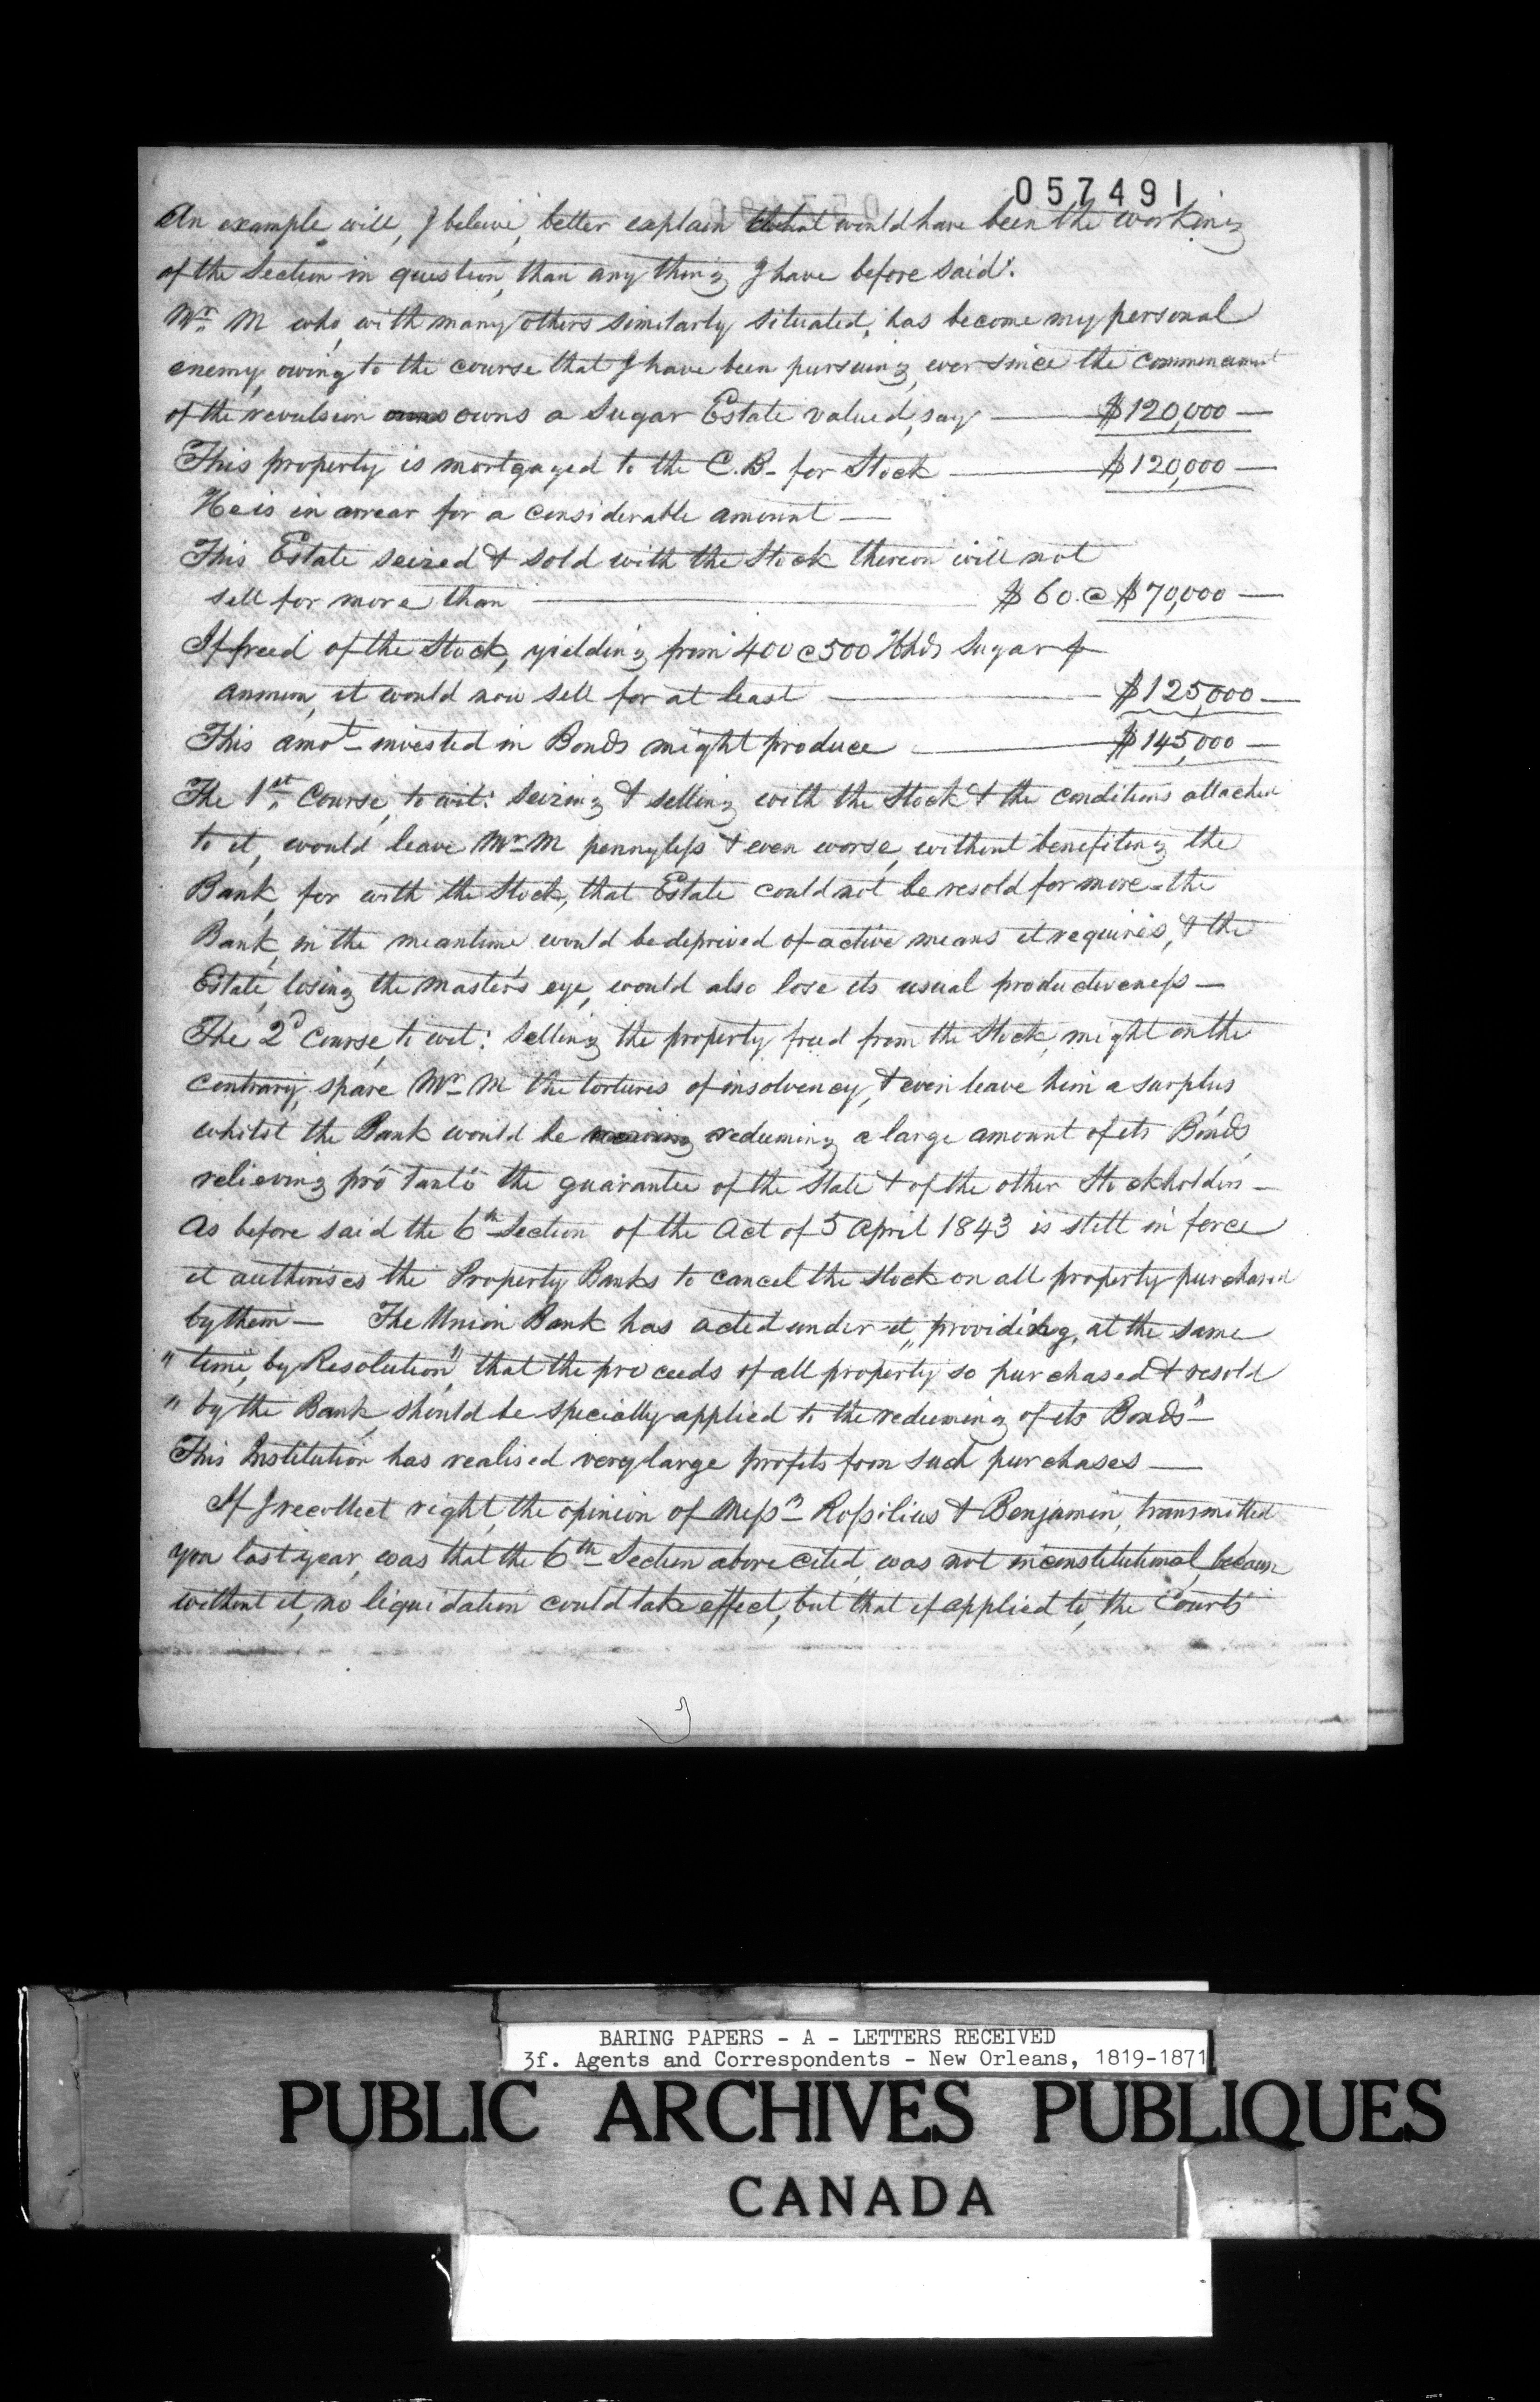 057491
An example will, I beleive, better explain what would have been the working
of the Section in question, than any thing I have before said.
Mr. M who, with many others similarly situated, has become my personal
enemy, owing to the course that I have been pursuing, ever since the commencement
of the revulsion owns a Sugar Estate valued, say — $120,000 —
This property is mortgaged to the C. B. for Stock — $120,000 —
He is in arrear for a considerable amount —
This Estate seized & sold with the Stock thereon will not
sell for more than — $60 @ $70,000 —
If freed of the Stock, yielding from 400 @ 500 Hhds Sugar p
annum, it would now sell for at least — $125,000 —
This amot. invested in Bonds might produce — $145,000 —
The 1st. Course, to wit: Seizing & selling with the Stock & the conditions attached
to it, would leave Mr. M pennyless & even worse, without benefiting the
Bank, for with the Stock, that Estate could not be resold for more - the
Bank, in the meantime would be deprived of active means it requires, & the
Estate, losing the master's eye, would also lose its usual productiveness —
The 2d Course, to wit: Selling the property freed from the Stock, might on the
contrary, spare Mr. M the tortures of insolvency, & even leave him a surplus
whilst the Bank would be redeeming a large amount of its Bonds,
relieving pro tanto the guarantee of the State & of the other Stockholders —
As before said the 6th Section of the Act of 5 April 1843 is still in force
it authorises the Property Banks to cancel the Stock on all property purchased
by them — The Union Bank has acted under it, "providing, at the same
" time, by Resolution," that the proceeds of all property so purchased & resold
" by the Bank, should be specially applied to the redeeming of its Bonds" —
This Institution has realised very large profits from such purchases —
If I recollect right, the opinion of Messrs Rosilius & Benjamin, transmitted
you last year, was that the 6th Section above cited, was not inconstitutional, because
without it, no liquidation could take effect, but that if applied to, the Courts
BARING PAPERS - A - LETTERS RECEIVED
3f. Agents and Correspondents - New Orleans, 1819-1871
PUBLIC ARCHIVES PUBLIQUES
CANADA